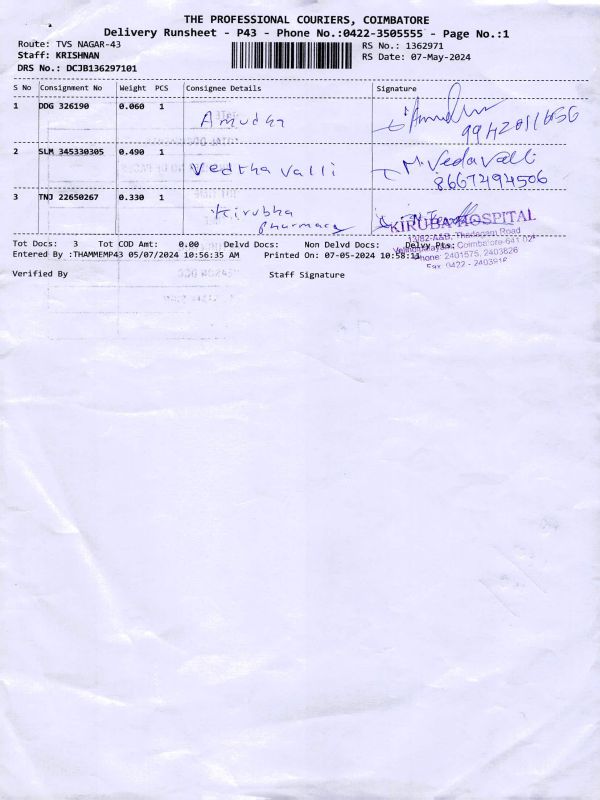 THE PROFESSIONAL COURIERS, COIMBATORE
Delivery Runsheet - P43 - Phone No.:0422-3505555 - Page No.:1
Route: TVS NAGAR-43 RS No.: 1362971
Staff: KRISHNAN RS Date: 07-May-2024
DRS No.: DCJB136297101
S No Consignment No Weight PCS Consignee Details Signature
1 DDG 326190 0.060 1 Amudha
2 SLM 345330305 0.490 1 Vedtha valli M. Vedavalli
8667494506
3 TNJ 22650267 0.330 1 Kirubha
pharmacy
KIRUBA HOSPITAL
13/82-A&B, Thadagam Road
Coimbatore-641 02
Phone: 2401575, 2403826
Fax: 0422 - 240391
Tot Docs: 3 Tot COD Amt: 0.00 Delvd Docs: Non Delvd Docs: Delvy Pts:
Entered By :THAMMEMP43 05/07/2024 10:56:35 AM Printed On: 07-05-2024 10:58:11
Verified By Staff Signature